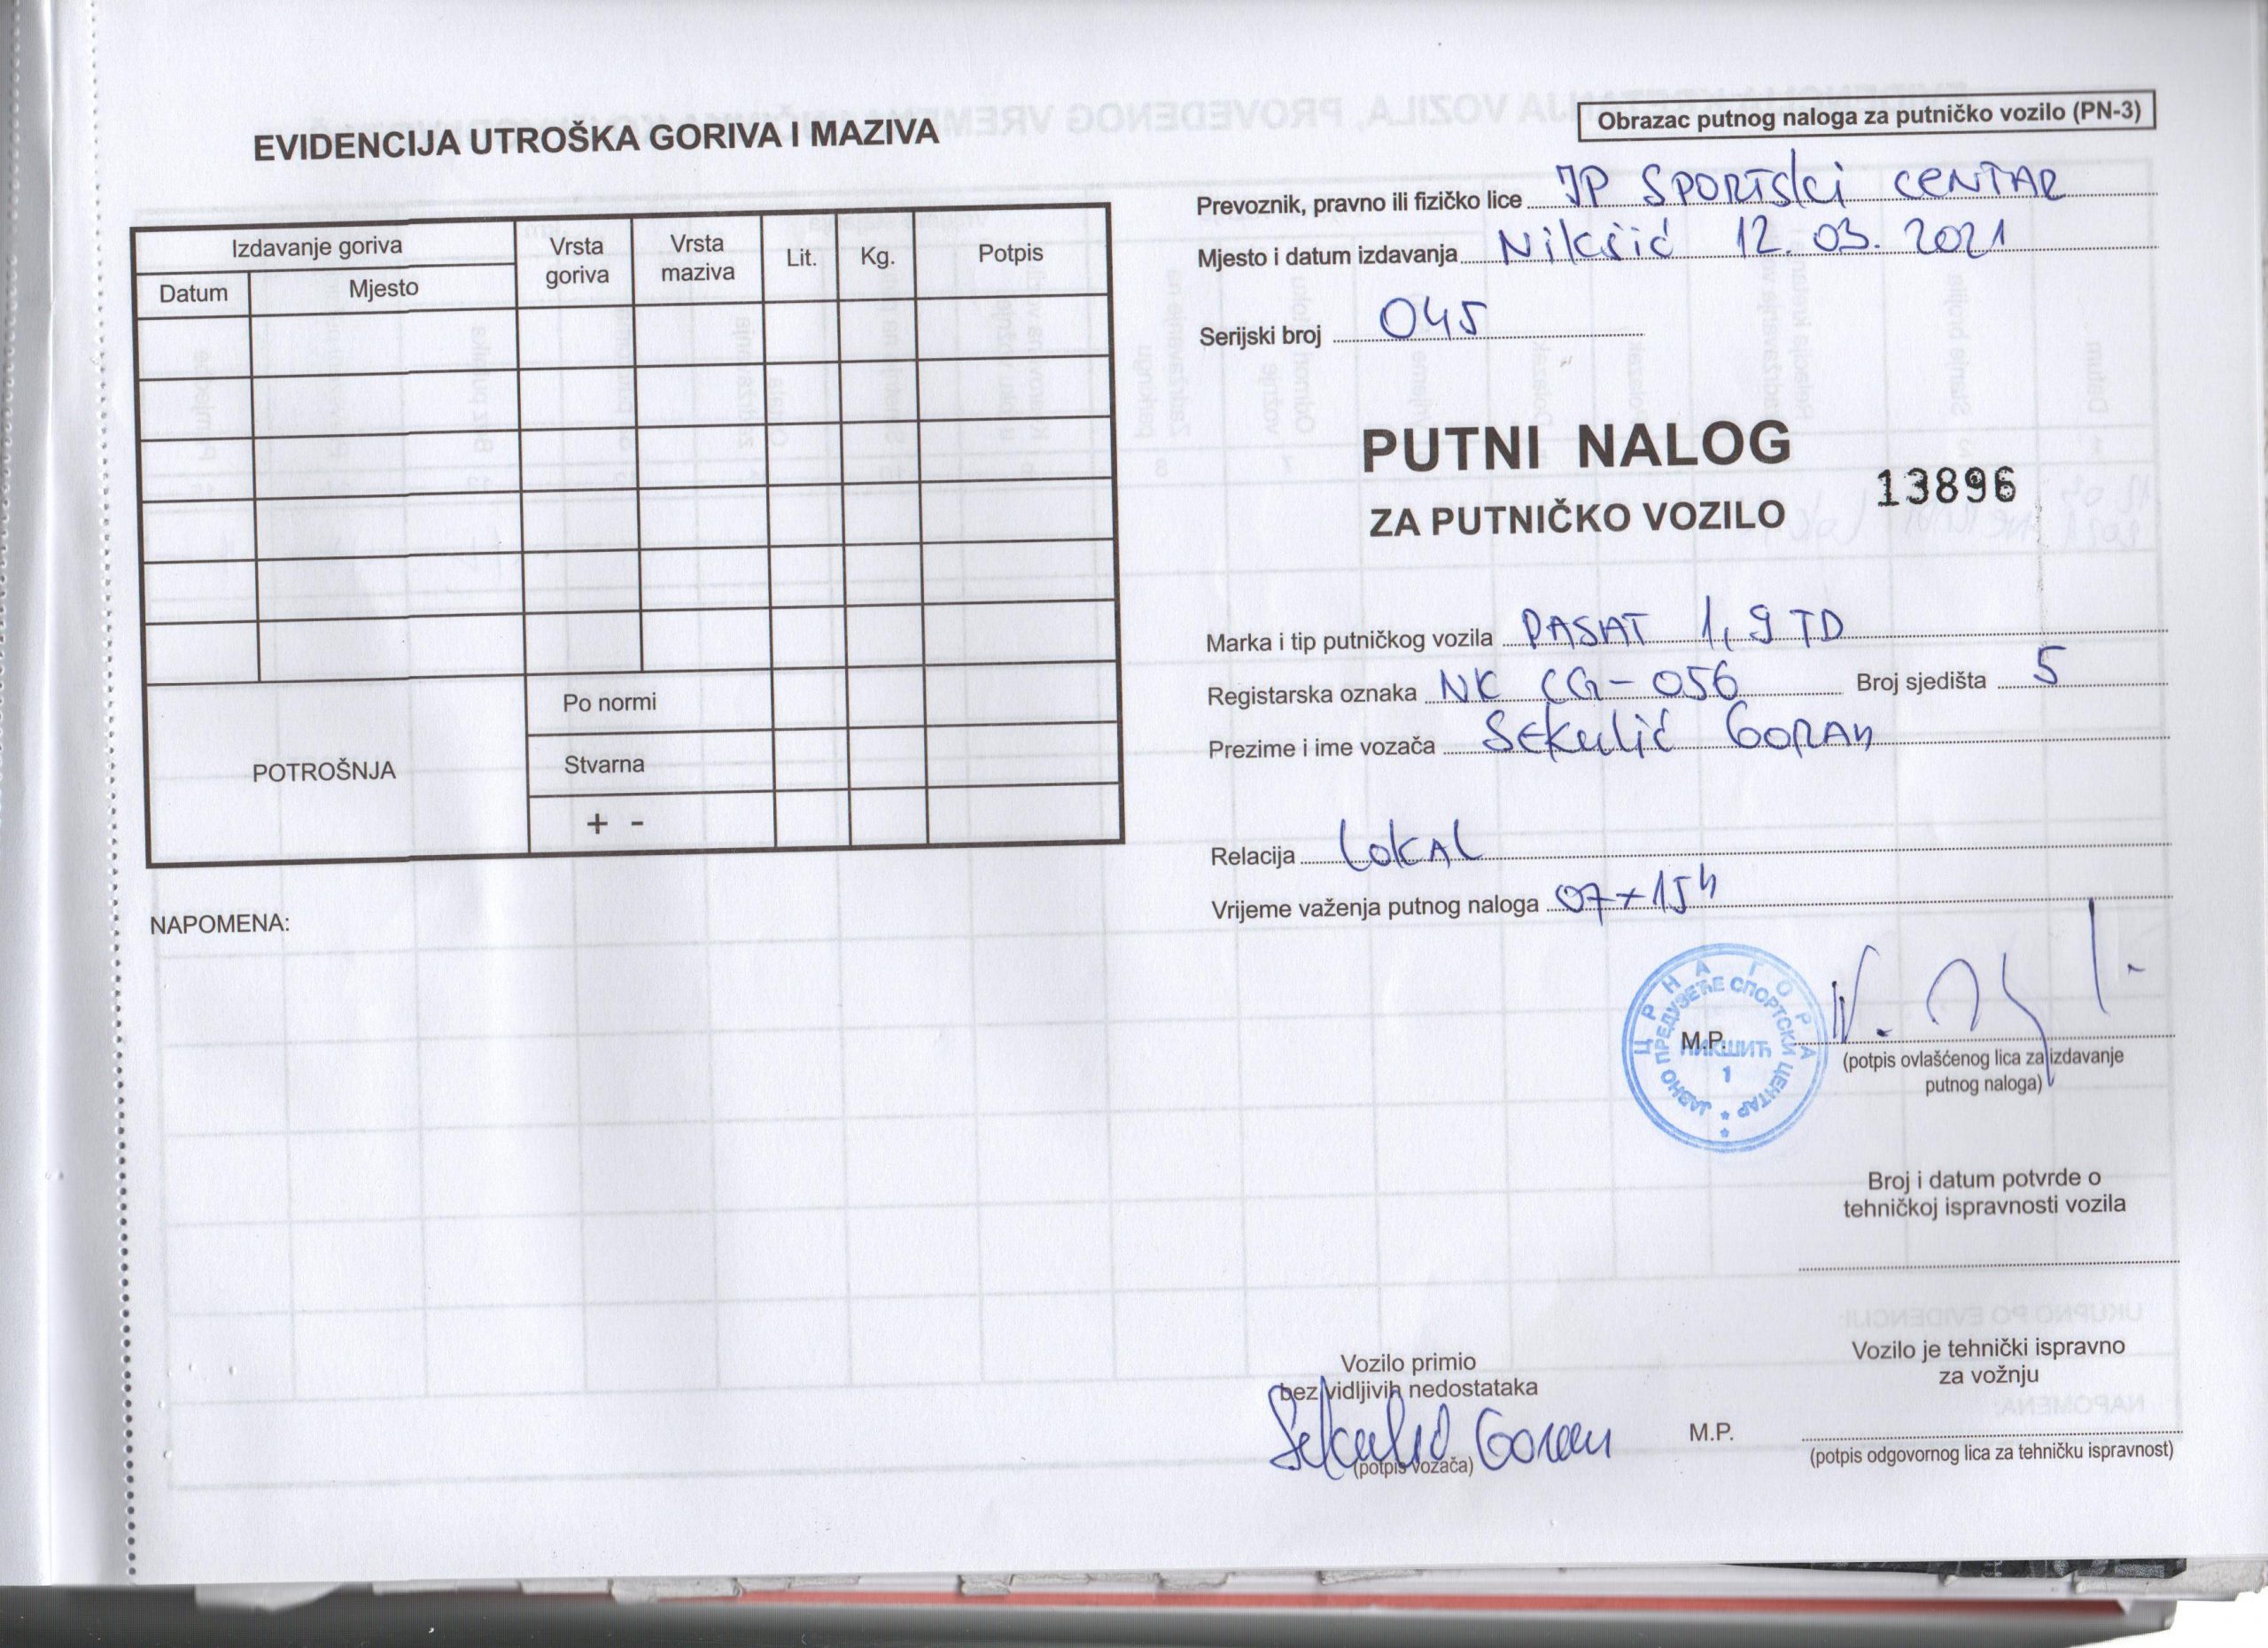 EVIDENCIJA UTROŠKA GORIVA I MAZIVA
Izdavanje goriva
Datum
Mjesto
Vrsta goriva
Vrsta maziva
Lit.
Kg.
Potpis
POTROŠNJA
Po normi
Stvarna
+ -
NAPOMENA:
Obrazac putnog naloga za putničko vozilo (PN-3)
Prevoznik, pravno ili fizičko lice JP SPORTSki CENTAR
Mjesto i datum izdavanja Nikšić 12. 03. 2021
Serijski broj 045
PUTNI NALOG
13896
ZA PUTNIČKO VOZILO
Marka i tip putničkog vozila PASAT 1,9 TD
Registarska oznaka NK CG-056 Broj sjedišta 5
Prezime i ime vozača SEKulić GORAN
Relacija LOKAL
Vrijeme važenja putnog naloga 07+15h
ЦРНА ГОРА
ЈАВНО ПРЕДУЗЕЋЕ СПОРТСКИ ЦЕНТАР
НИКШИЋ
1
M.P.
(potpis ovlašćenog lica za izdavanje
putnog naloga)
Broj i datum potvrde o
tehničkoj ispravnosti vozila
Vozilo primio
bez vidljivih nedostataka
Sekulić Goran
(potpis vozača)
Vozilo je tehnički ispravno
za vožnju
M.P.
(potpis odgovornog lica za tehničku ispravnost)